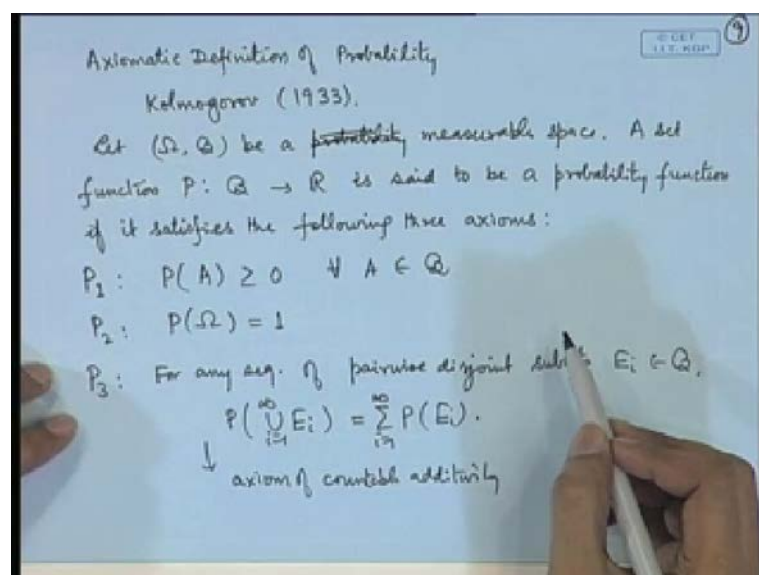 © CET
I.I.T. KGP
9
Axiomatic Definition of Probability
Kolmogorov (1933).
Let (Ω, B) be a probability measurable space. A set
function P : B → R is said to be a probability function
if it satisfies the following three axioms :
P₁ : P(A) ≥ 0 ∀ A ∈ B
P₂ : P(Ω) = 1
P₃ : For any seq. of pairwise disjoint Eᵢ ∈ B,
P(⋃ᵢ₌₁^∞ Eᵢ) = ∑ᵢ₌₁^∞ P(Eᵢ).
↓ axiom of countable additivity